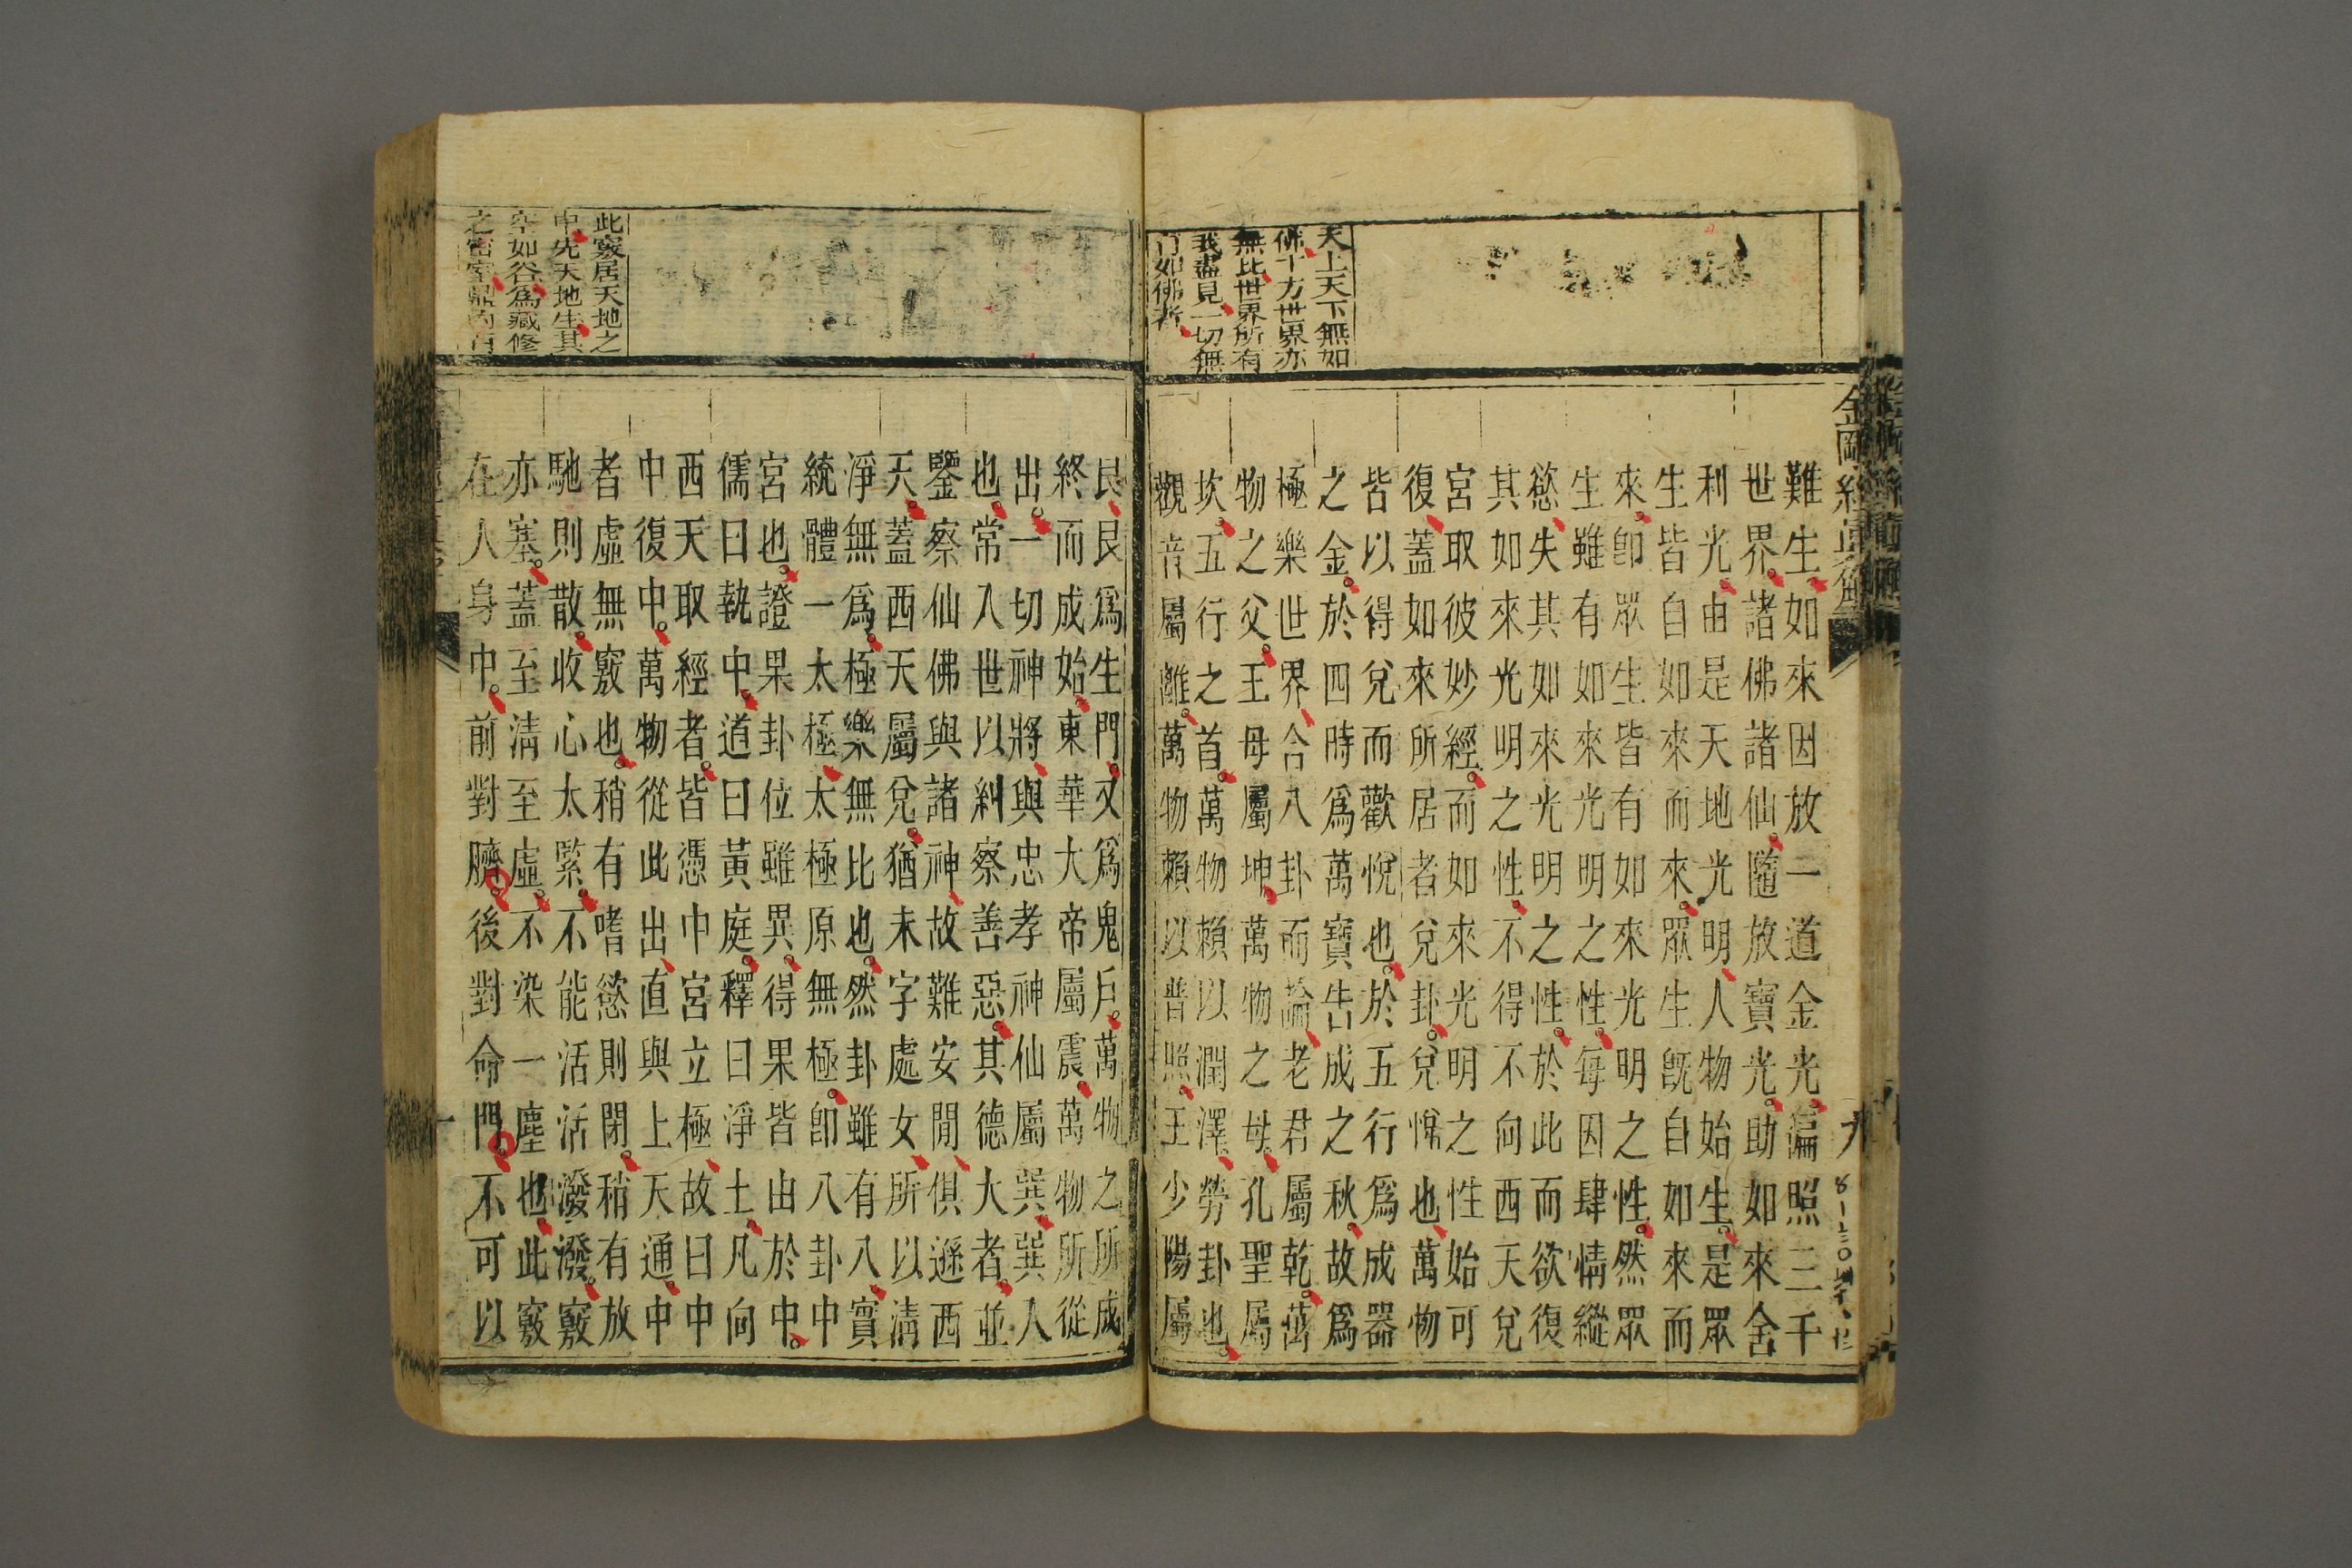 天上天下無如
佛十方世界亦
無比世界所有
我盡見一切無
有如佛者
難生如來因放一道金光徧照三千
世界諸佛諸仙隨放寶光助如來舍
利光由是天地光明人物始生是眾
生皆自如來而來眾生旣自如來而
來卽眾生皆有如來光明之性然眾
生雖有如來光明之性每因肆情縱
慾失其如來光明之性於此而欲復
其如來光明之性不得不向西天兌
宮取彼妙經而如來光明之性始可
復蓋如來所居者兌卦兌悌也萬物
皆以得兌而歡悅也於五行爲成器
之金於四時爲萬寶告成之秋故爲
極樂世界合八卦而論老君屬乾萬
物之父王母屬坤萬物之母孔聖屬
坎五行之首萬物賴以潤澤勞卦也
觀音屬離萬物賴以普照王少陽屬
艮艮爲生門又爲鬼戶萬物之所成
終而成始東華大帝屬震萬物所從
出一切神將與忠孝神仙屬巽巽人
也常入世以糾察善惡其德大者並
鑒察仙佛與諸神故難安閒俱遜西
天蓋西天屬兌猶未字處女所以清
淨無爲極樂無比也然卦雖有八實
統體一太極太極原無極卽八卦中
宮也證果卦位雖異得果皆由於中
儒曰執中道曰黃庭釋曰淨土凡向
西天取經者皆憑中宮立極故曰中
中復中萬物從此出直與上天通中
者虛無竅也稍有嗜慾則閉稍有放
馳則散收心太緊不能活活潑潑竅
亦塞蓋至清至虛不染一塵也此竅
在人身中前對臍後對命門不可以
此竅居天地之
中先天地生其
空如谷爲藏修
之密室